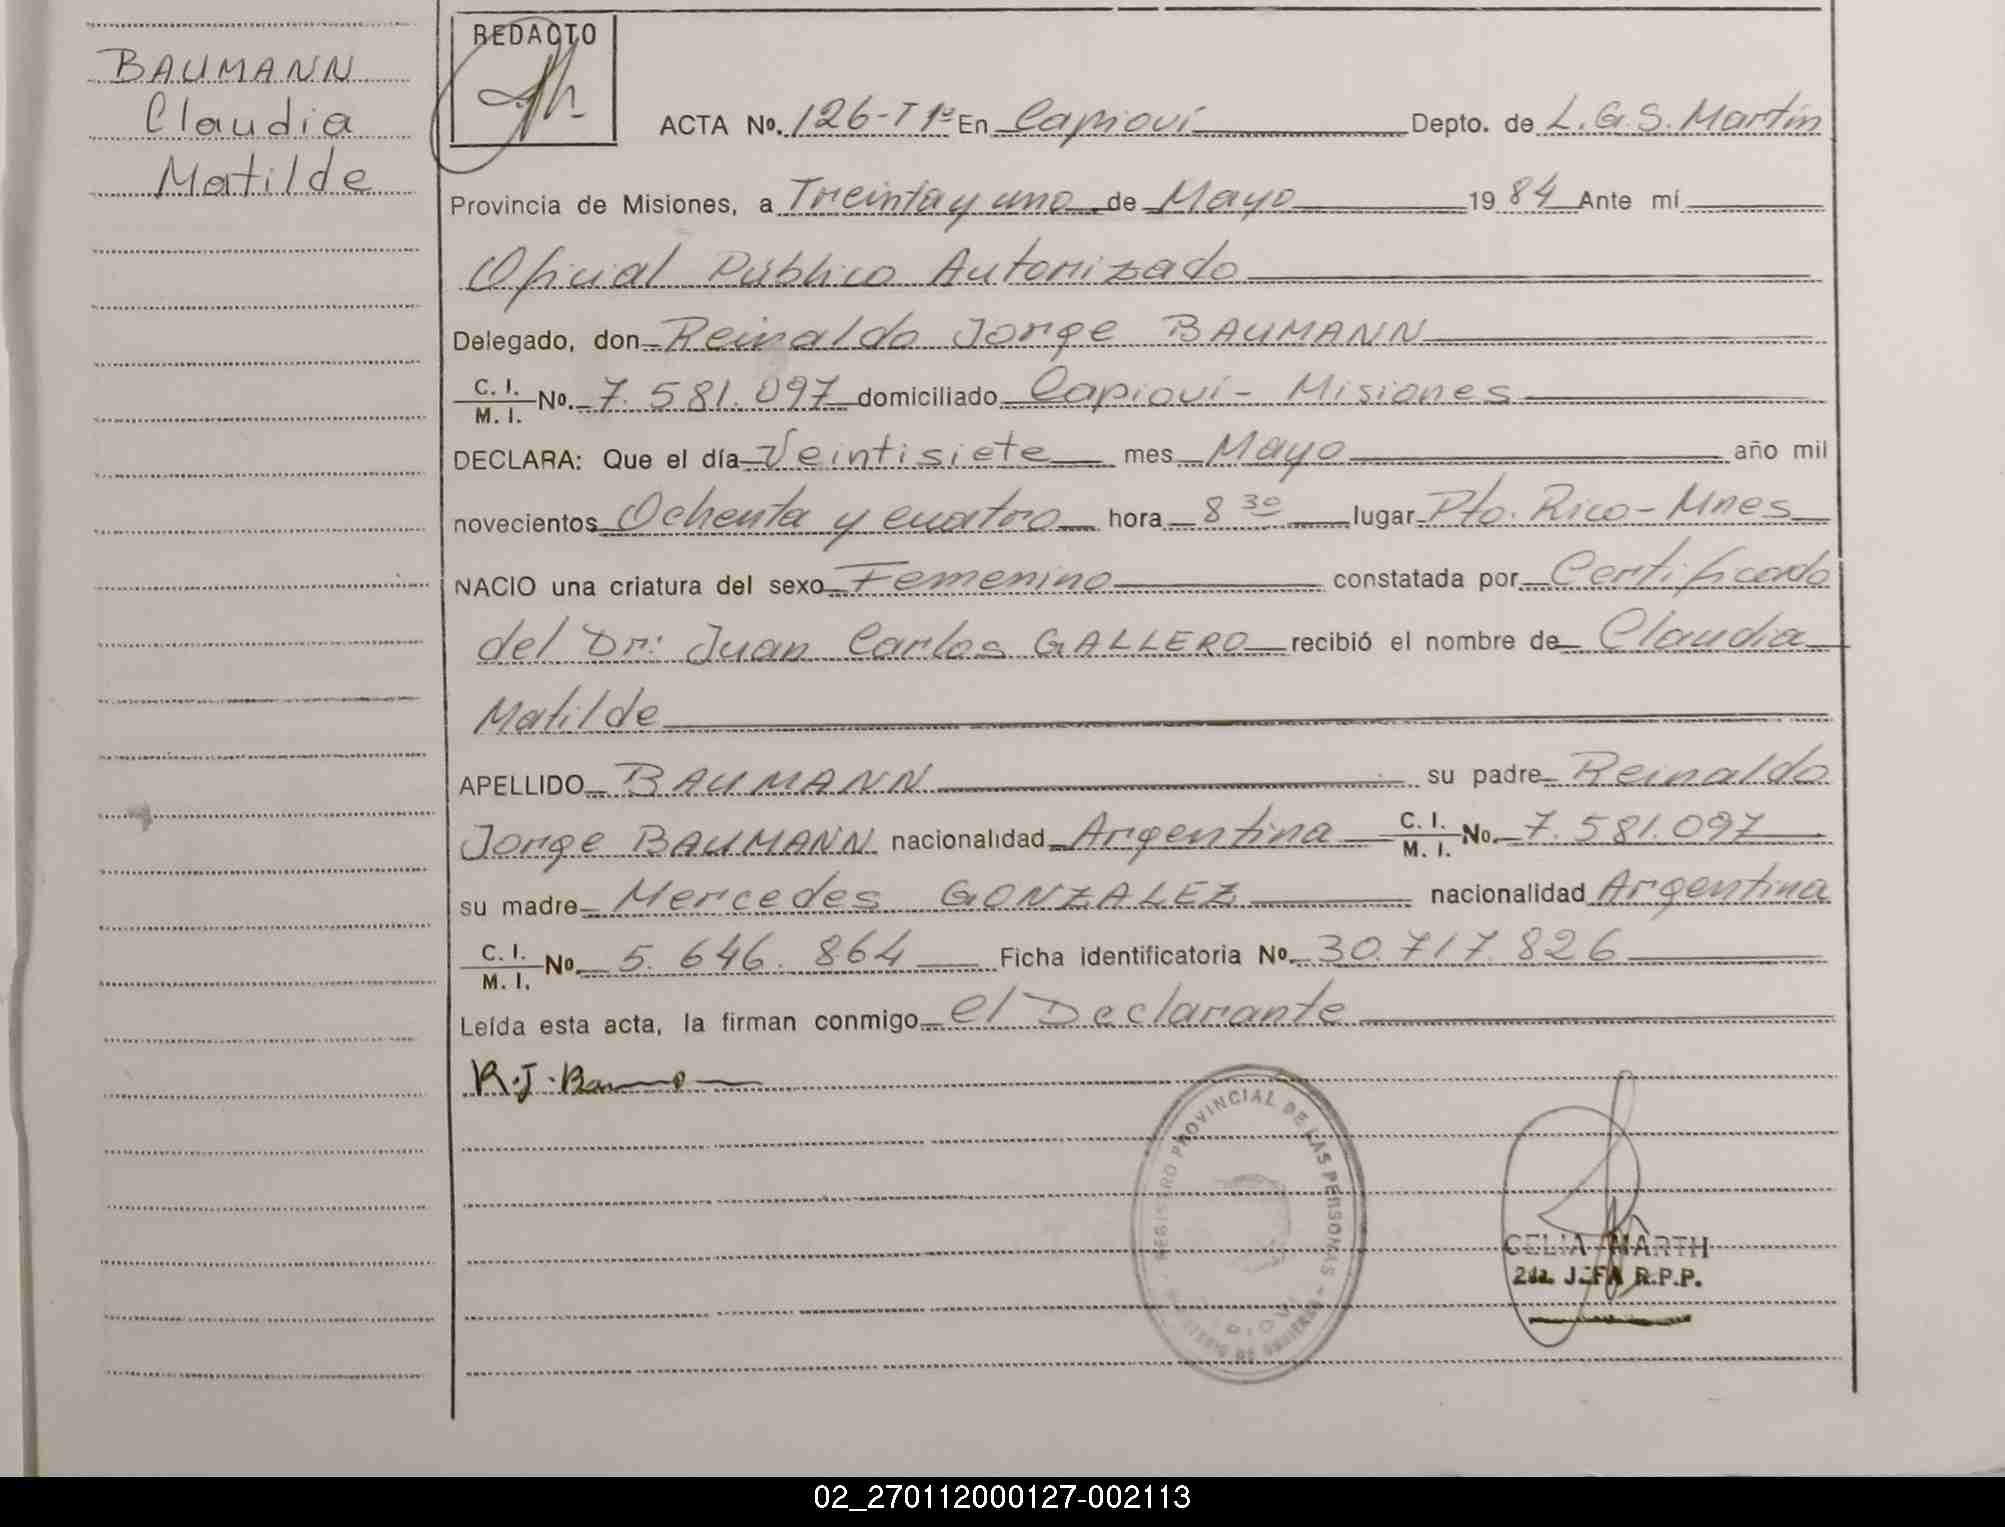 BAUMANN
Claudia
Matilde
REDACTO
ACTA No. 126-T 1º En Capioví Depto. de L.G.S. Martín
Provincia de Misiones, a Treinta y uno de Mayo 1984 Ante mí
Oficial Público Autorizado
Delegado, don Reinaldo Jorge BAUMANN
C. I. / M. I. No. 7.581.097 domiciliado Capioví - Misiones
DECLARA: Que el día Veintisiete mes Mayo año mil
novecientos Ochenta y cuatro hora 8 30 lugar Pto. Rico - Mnes
NACIO una criatura del sexo Femenino constatada por Certificado
del Dr: Juan Carlos GALLERO recibió el nombre de Claudia
Matilde
APELLIDO BAUMANN su padre Reinaldo
Jorge BAUMANN nacionalidad Argentina C. I. / M. I. No. 7.581.097
su madre Mercedes GONZALEZ nacionalidad Argentina
C. I. / M. I. No. 5.646.864 Ficha identificatoria No. 30.717.826
Leída esta acta, la firman conmigo el Declarante
R.J. Baumann
REGISTRO PROVINCIAL DE LAS PERSONAS
CELIA MARTH
2da. JEFA R.P.P.
02_270112000127-002113